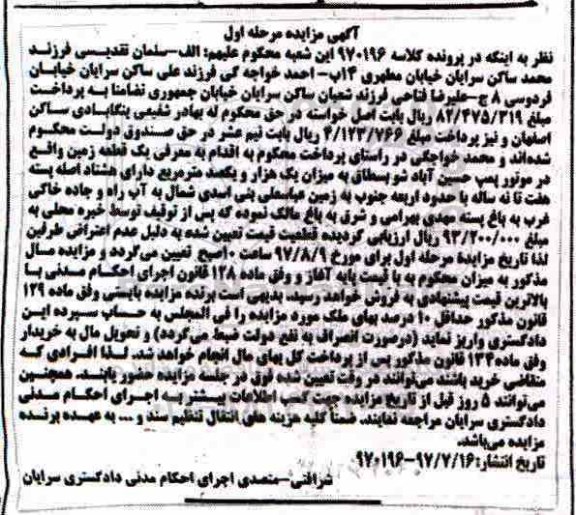 آگهی مزایده مرحله اول
نظر به اینکه در پرونده کلاسه ۹۷۰۱۹۶ این شعبه محکوم علیهم: الف-سلمان تقدیسی فرزند
محمد ساکن سرایان خیابان مطهری ۱۴ب- احمد خواجه گی فرزند علی ساکن سرایان خیابان
فردوسی ۸ ج-علیرضا فتاحی فرزند شعبان ساکن سرایان خیابان جمهوری تضامنا به پرداخت
مبلغ ۸۲/۴۷۵/۳۱۹ ریال بابت اصل خواسته در حق محکوم له بهادر شفیعی بنگابادی ساکن
اصفهان و نیز پرداخت مبلغ ۴/۱۲۳/۷۶۶ ریال بابت نیم عشر در حق صندوق دولت محکوم
شده‌اند و محمد خواجگی در راستای پرداخت محکوم به اقدام به معرفی یک قطعه زمین واقع
در موتور پمپ حسین آباد شو بسطاق به میزان یک هزار و یکصد مترمربع دارای هشتاد اصله پسته
هفت تا نه ساله با حدود اربعه جنوب به زمین عباسعلی بنی اسدی شمال به آب راه و جاده خاکی
غرب به باغ پسته مهدی بهرامی و شرق به باغ مالک نموده که پس از توقیف توسط خبره محلی به
مبلغ ۹۳/۲۰۰/۰۰۰ ریال ارزیابی گردیده قطعیت قیمت تعیین شده به دلیل عدم اعتراض طرفین
لذا تاریخ مزایدهٔ مرحله اول برای مورخ ۹۷/۸/۹ ساعت ۱۰صبح تعیین می‌گردد و مزایده مال
مذکور به میزان محکوم به با قیمت پایه آغاز و وفق ماده ۱۲۸ قانون اجرای احکام مدنی با
بالاترین قیمت پیشنهادی به فروش خواهد رسید. بدیهی است برنده مزایده بایستی وفق ماده ۱۲۹
قانون مذکور حداقل ۱۰ درصد بهای ملک مورد مزایده را فی المجلس به حساب سپرده این
دادگستری واریز نماید (درصورت انصراف به نفع دولت ضبط می‌گردد) و تحویل مال به خریدار
وفق ماده۱۳۴ قانون مذکور پس از پرداخت کل بهای مال انجام خواهد شد. لذا افرادی که
متقاضی خرید باشند می‌توانند در وقت تعیین شده فوق در جلسه مزایده حضور یابند. همچنین
می‌توانند ۵ روز قبل از تاریخ مزایده جهت کسب اطلاعات بیشتر به اجرای احکام مدنی
دادگستری سرایان مراجعه نمایند. ضمناً کلیه هزینه های انتقال تنظیم سند و ... به عهده برنده
مزایده می‌باشد.
تاریخ انتشار: ۹۷/۷/۱۶-۹۷۰۱۹۶
شرافتی-متصدی اجرای احکام مدنی دادگستری سرایان